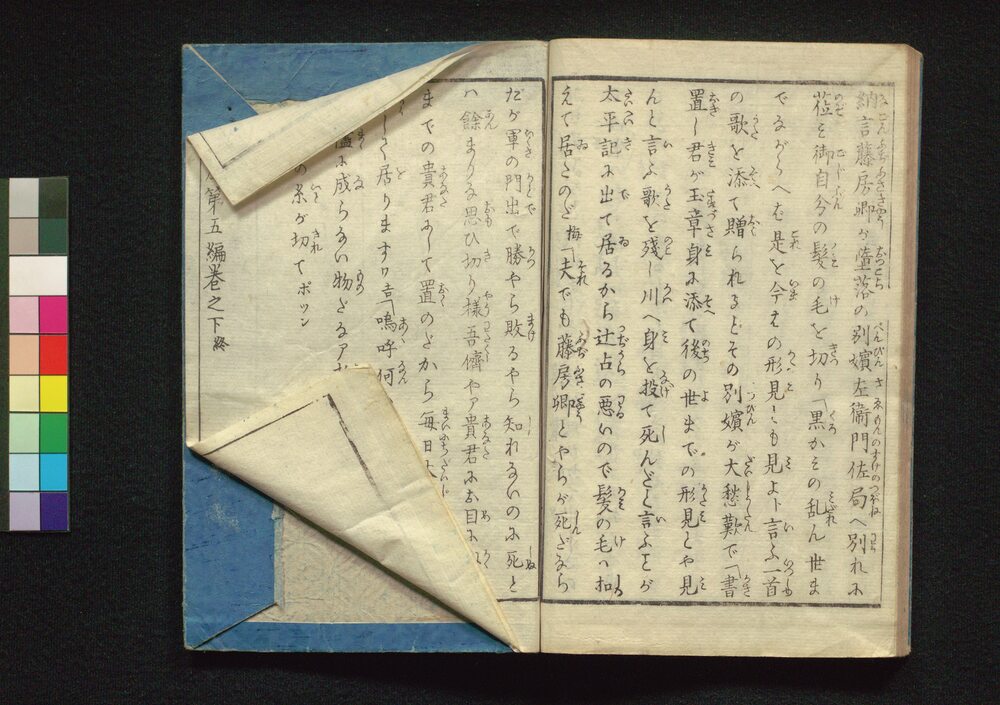 納言藤房卿が墮落の別嬪左衞門佐局へ別れに
莅ミ御自分の髪の毛を切り「黒かミの乱ん世ま
でながらへば是を今ハの形見とも見よト言ふ一首
の歌を添て贈られるとその別嬪が大愁歎で「書
置し君が玉章身に添て後の世までの形見とや見
んと言ふ歌を殘し川へ身を投て死んだと言ふことが
太平記に出て居るから辻占の悪いので髪の毛ハ扣
えて居たのだ梅「夫でも藤房卿とやらが死だなら
だが軍の門出で勝やら敗るやら知れないのに死と
ハ餘まりな思ひ切り樣吾儕やア貴君にお目に
までの貴君にして置のだから毎日
して居りますワ吉「嗚呼何
儘に成らない物だなア
の糸が切てポツン
第五編巻之下終